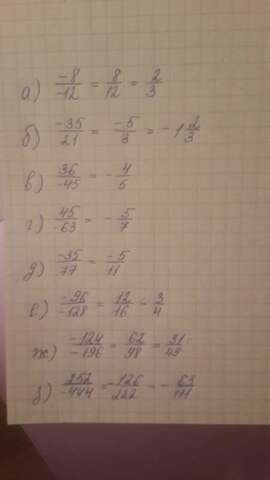 а) -8/-12 = 8/12 = 2/3
б) -35/21 = -5/3 = -1 2/3
в) 36/-45 = - 4/5
г) 45/-63 = - 5/7
д) -35/77 = -5/11
е) -96/-128 = 12/16 = 3/4
ж) -124/-196 = 62/98 = 31/49
з) 252/-444 = -126/222 = - 63/111